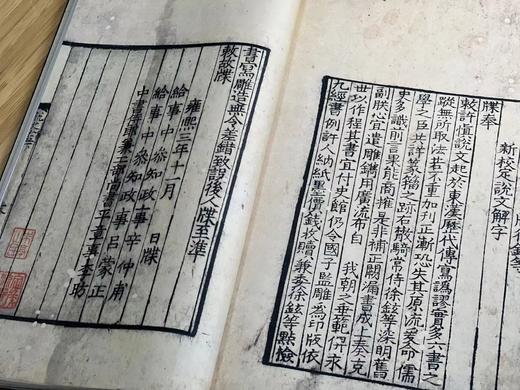 新校定說文解字
牒奉
敕許慎說文起於東漢歷代傳寫譌謬實多六書之
蹤無所取法若不重加刊正漸恐失其原流爰命儒
學之臣共詳篆籀之跡右散騎常侍徐鉉等深明舊
史多識前言果能商搉是非補正闕漏書成上奏克
副朕心宜遣雕鐫用廣流布自我朝之垂範俾永
世以作程其書宜付史館仍令國子監雕為印版依
九經書例許人納紙墨價錢收贖兼委徐鉉等點檢
書寫雕造無令差錯致誤後人牒至準
敕故牒
雍熙三年十一月 日牒
給事中參知政事辛仲甫
給事中參知政事呂蒙正
中書侍郎兼工部尚書平章事李昉